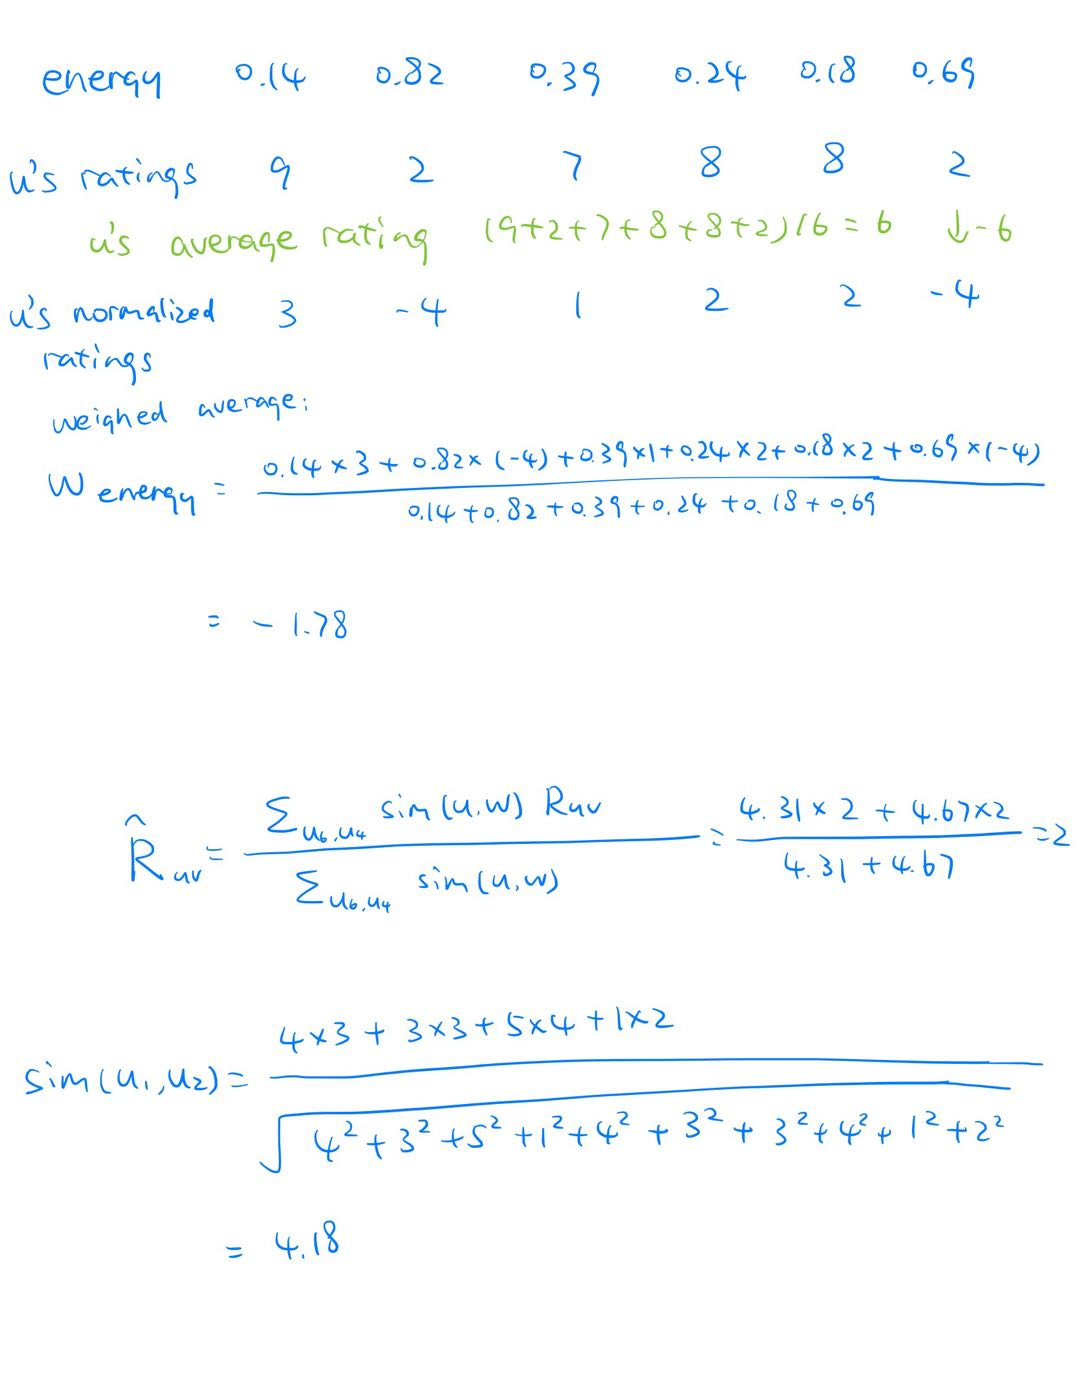 energy 0.14 0.82 0.39 0.24 0.18 0.69
u's ratings 9 2 7 8 8 2
u's average rating (9+2+7+8+8+2)/6 = 6 ↓-6
u's normalized 3 -4 1 2 2 -4
ratings
weighed average:
W energy = (0.14×3 + 0.82×(-4) + 0.39×1 + 0.24×2 + 0.18×2 + 0.69×(-4)) / (0.14 + 0.82 + 0.39 + 0.24 + 0.18 + 0.69)
= -1.78
R̂uv = (Σu6,u4 sim(u,w) Ruv) / (Σu6,u4 sim(u,w)) = (4.31×2 + 4.67×2) / (4.31 + 4.67) = 2
sim(u1,u2) = (4×3 + 3×3 + 5×4 + 1×2) / √(4² + 3² + 5² + 1² + 4² + 3² + 3² + 4² + 1² + 2²)
= 4.18